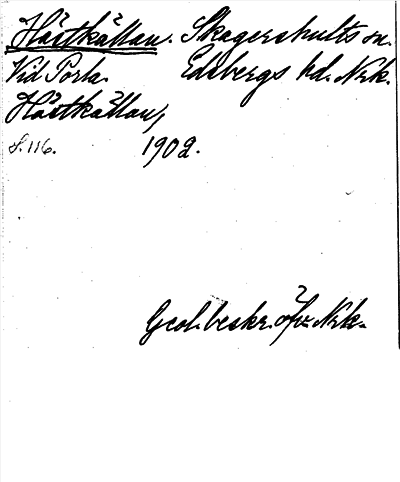 Hästkällan. Skagershults sn.
Vid Porla. Edsbergs hd. Nrk.
Hästkällan,
S. 116. 1902.
Geol. beskr. öfv. Nrk.